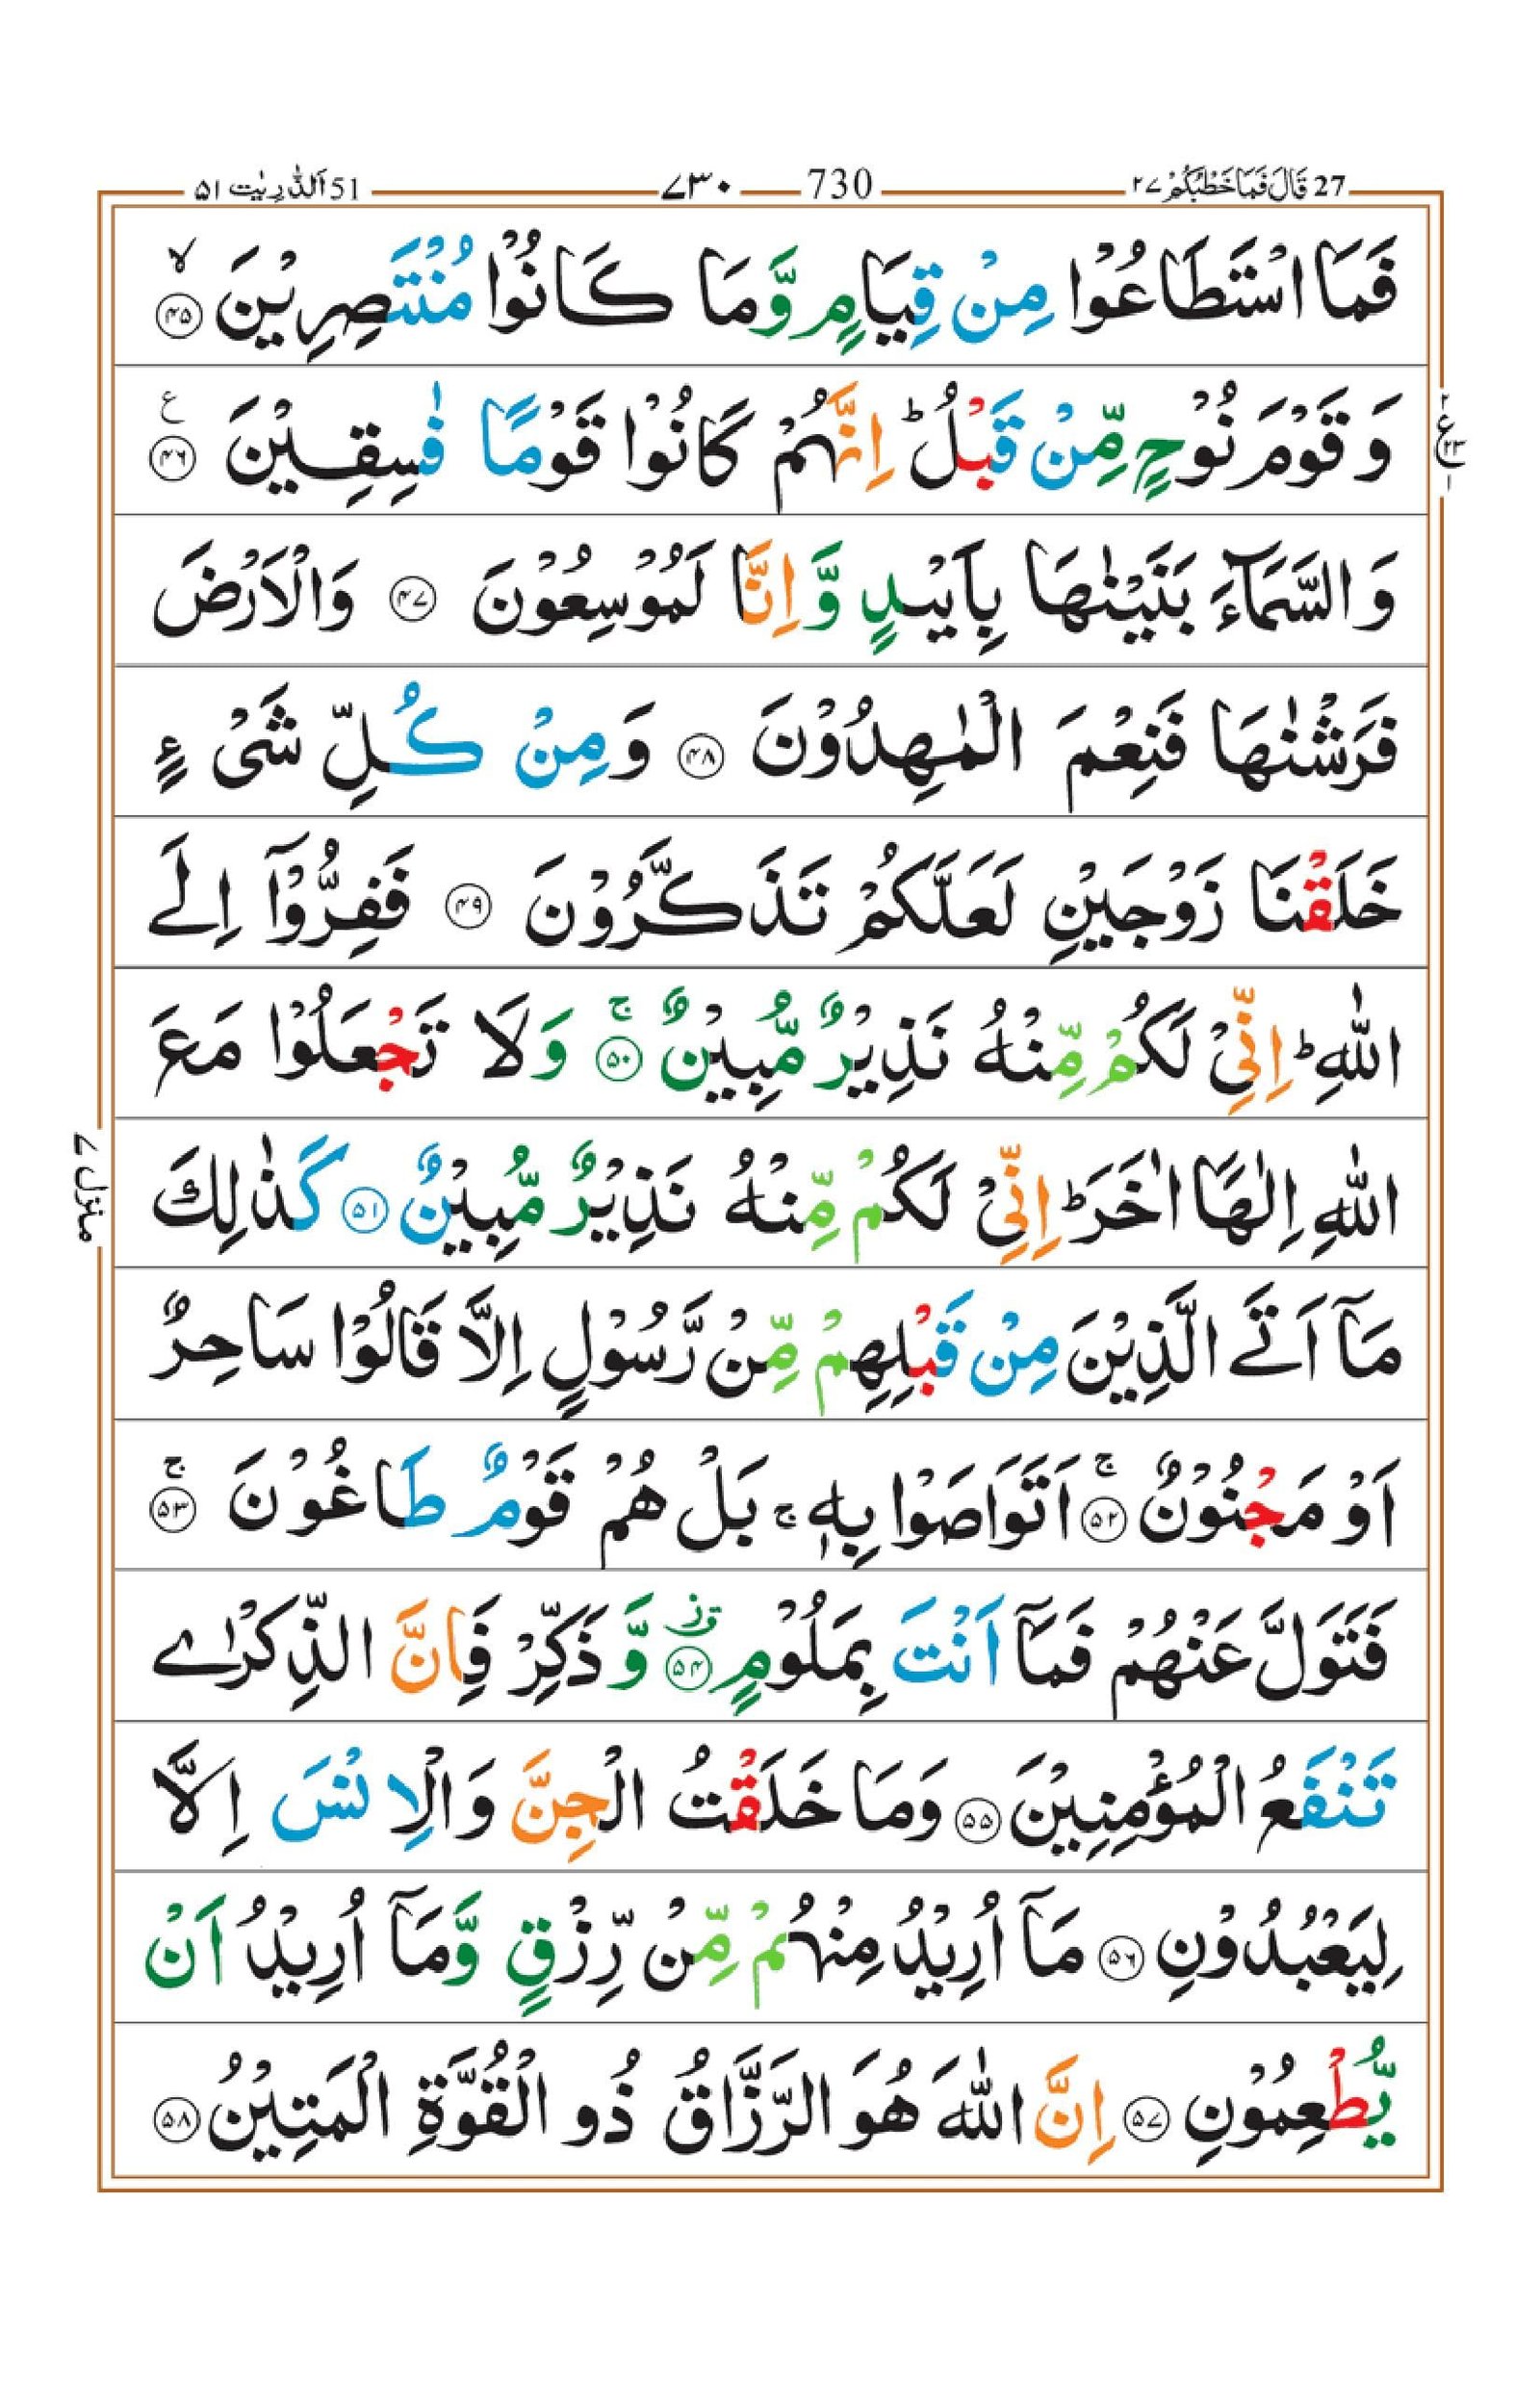 27 قَالَ فَمَا خَطْبُكُمْ ۲۷ 730 ۷۳۰ 51 اَلذّٰرِيٰت ۵۱
فَمَا اسْتَطَاعُوْا مِنْ قِيَامٍ وَّمَا كَانُوْا مُنْتَصِرِيْنَ ۙ‏﴿۴۵﴾
وَ قَوْمَ نُوْحٍ مِّنْ قَبْلُ ؕ اِنَّهُمْ كَانُوْا قَوْمًا فٰسِقِيْنَ ﴿۴۶﴾ ع
۲ ع ۲۳ ۱
وَ السَّمَآءَ بَنَيْنٰهَا بِاَيْىدٍ وَّ اِنَّا لَمُوْسِعُوْنَ ﴿۴۷﴾ وَالْاَرْضَ
فَرَشْنٰهَا فَنِعْمَ الْمٰهِدُوْنَ ﴿۴۸﴾ وَمِنْ كُلِّ شَىْءٍ
خَلَقْنَا زَوْجَيْنِ لَعَلَّكُمْ تَذَكَّرُوْنَ ﴿۴۹﴾ فَفِرُّوْۤا اِلَى
اللّٰهِ ؕ اِنِّىْ لَكُمْ مِّنْهُ نَذِيْرٌ مُّبِيْنٌ ۚ‏﴿۵۰﴾ وَلَا تَجْعَلُوْا مَعَ
اللّٰهِ اِلٰهًا اٰخَرَ ؕ اِنِّىْ لَكُمْ مِّنْهُ نَذِيْرٌ مُّبِيْنٌ ﴿۵۱﴾ كَذٰلِكَ
منزل ۷
مَاۤ اَتَى الَّذِيْنَ مِنْ قَبْلِهِمْ مِّنْ رَّسُوْلٍ اِلَّا قَالُوْا سَاحِرٌ
اَوْ مَجْنُوْنٌ ۚ‏﴿۵۲﴾ اَتَوَاصَوْا بِهٖ ۚ بَلْ هُمْ قَوْمٌ طَاغُوْنَ ۚ‏﴿۵۳﴾
فَتَوَلَّ عَنْهُمْ فَمَاۤ اَنْتَ بِمَلُوْمٍ ﴿۵۴﴾ وَّ ذَكِّرْ فَاِنَّ الذِّكْرٰى
تَنْفَعُ الْمُؤْمِنِيْنَ ﴿۵۵﴾ وَمَا خَلَقْتُ الْجِنَّ وَالْاِنْسَ اِلَّا
لِيَعْبُدُوْنِ ﴿۵۶﴾ مَاۤ اُرِيْدُ مِنْهُمْ مِّنْ رِّزْقٍ وَّمَاۤ اُرِيْدُ اَنْ
يُّطْعِمُوْنِ ﴿۵۷﴾ اِنَّ اللّٰهَ هُوَ الرَّزَّاقُ ذُو الْقُوَّةِ الْمَتِيْنُ ﴿۵۸﴾